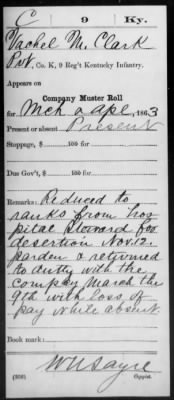 C 9 Ky.
Vachel M. Clark
Pvt, Co. K, 9 Reg't Kentucky Infantry.
Appears on
Company Muster Roll
for Mch & Apl, 1863
Present or absent Present
Stoppage, $ 100 for
Due Gov't, $ 100 for
Remarks: Reduced to
ranks from hos
pital Steward for
desertion Nov. 12.
pardon & returned
to duty with the
compay March the
9th with loss of
pay while absent.
Book mark:
W H Sayre
(358) Copyist.